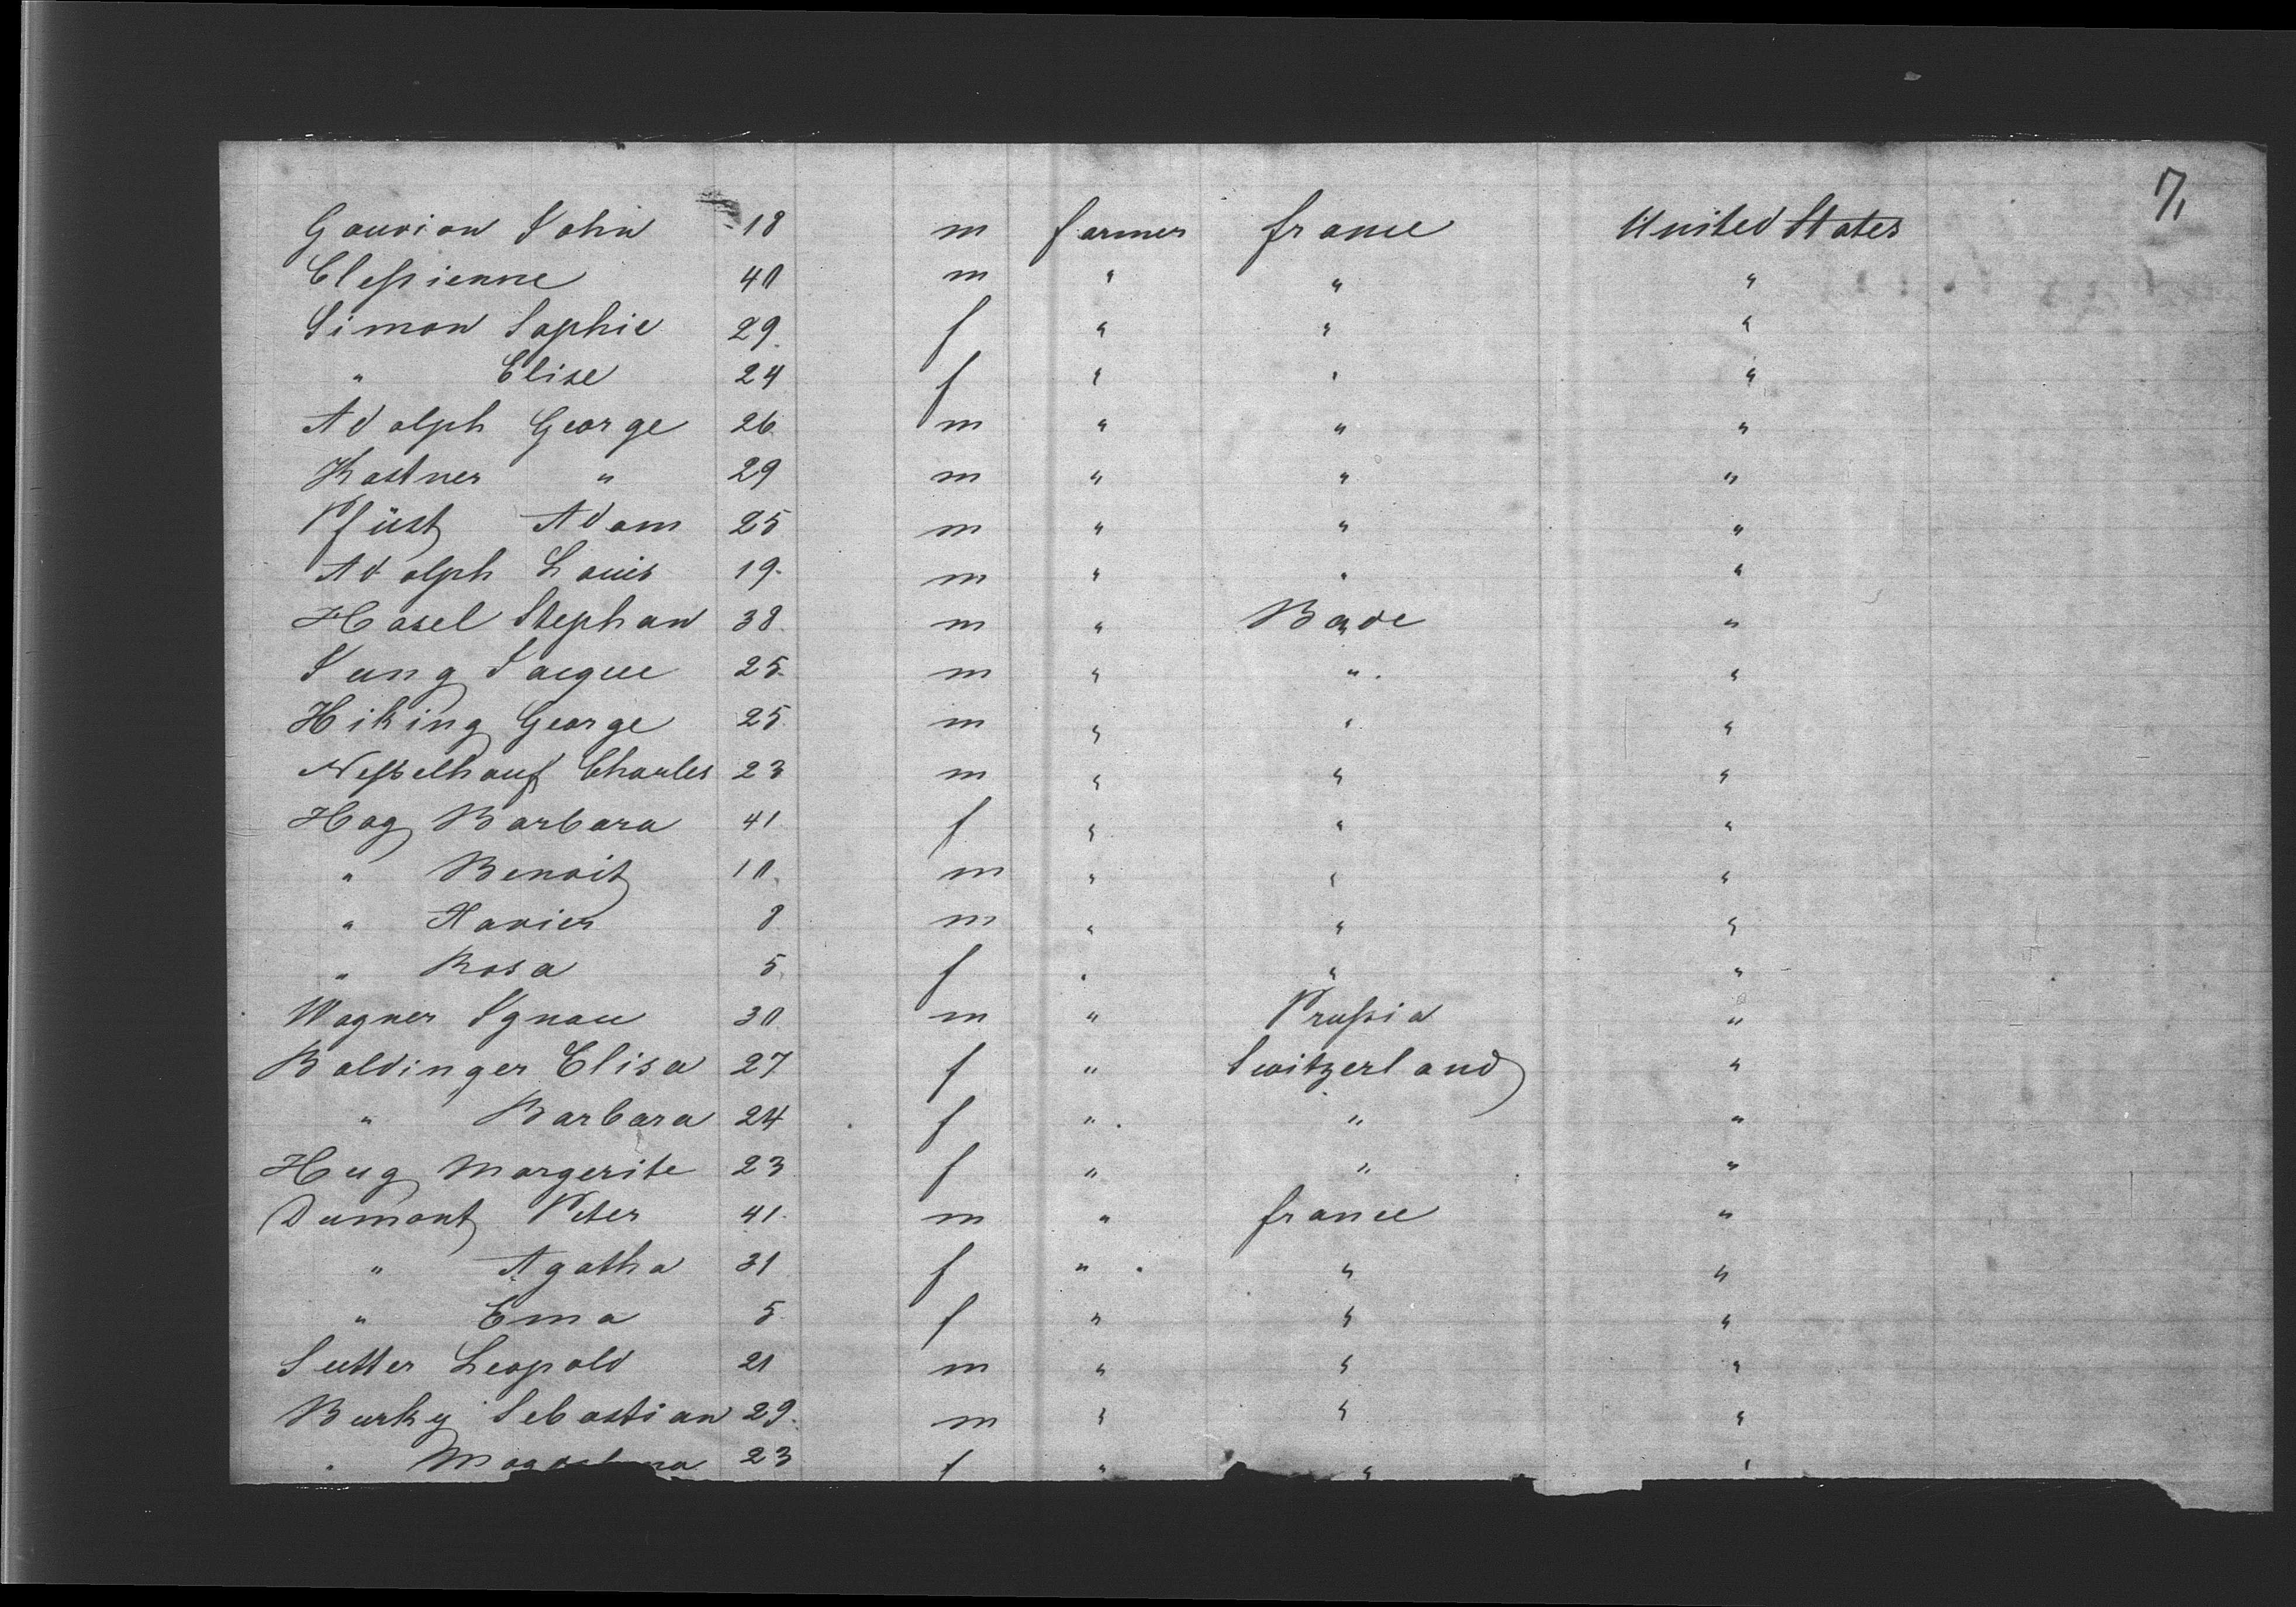 7,
Gouvion John 18 m farmer france United States
Clessienne 40 m " " "
Simon Sophie 29. f " " "
" Elise 24 f " " "
Adolph George 26 m " " "
Kastner " 29 m " " "
Pfüst Adam 25 m " " "
Adolph Louis 19. m " " "
Hasel Stephan 38. m " Bade "
Jung Jacque 25. m " " "
Hiking George 25. m " " "
Nesselhauf Charles 23 m " " "
Hog Barbara 41 f " " "
" Benoit 10. m " " "
" Xavier 8 m " " "
" Rosa 5. f " " "
Wagner Ignace 30 m " Prussia "
Baldinger Elisa 27 f " Switzerland "
" Barbara 24 f " " "
Hug Margerite 23 f " " "
Dumont Peter 41. m " france "
" Agatha 31 f " " "
" Ema 5 f " " "
Sutter Leopold 21 m " " "
Burky Sebastian 29. m " " "
" 23 f " " "